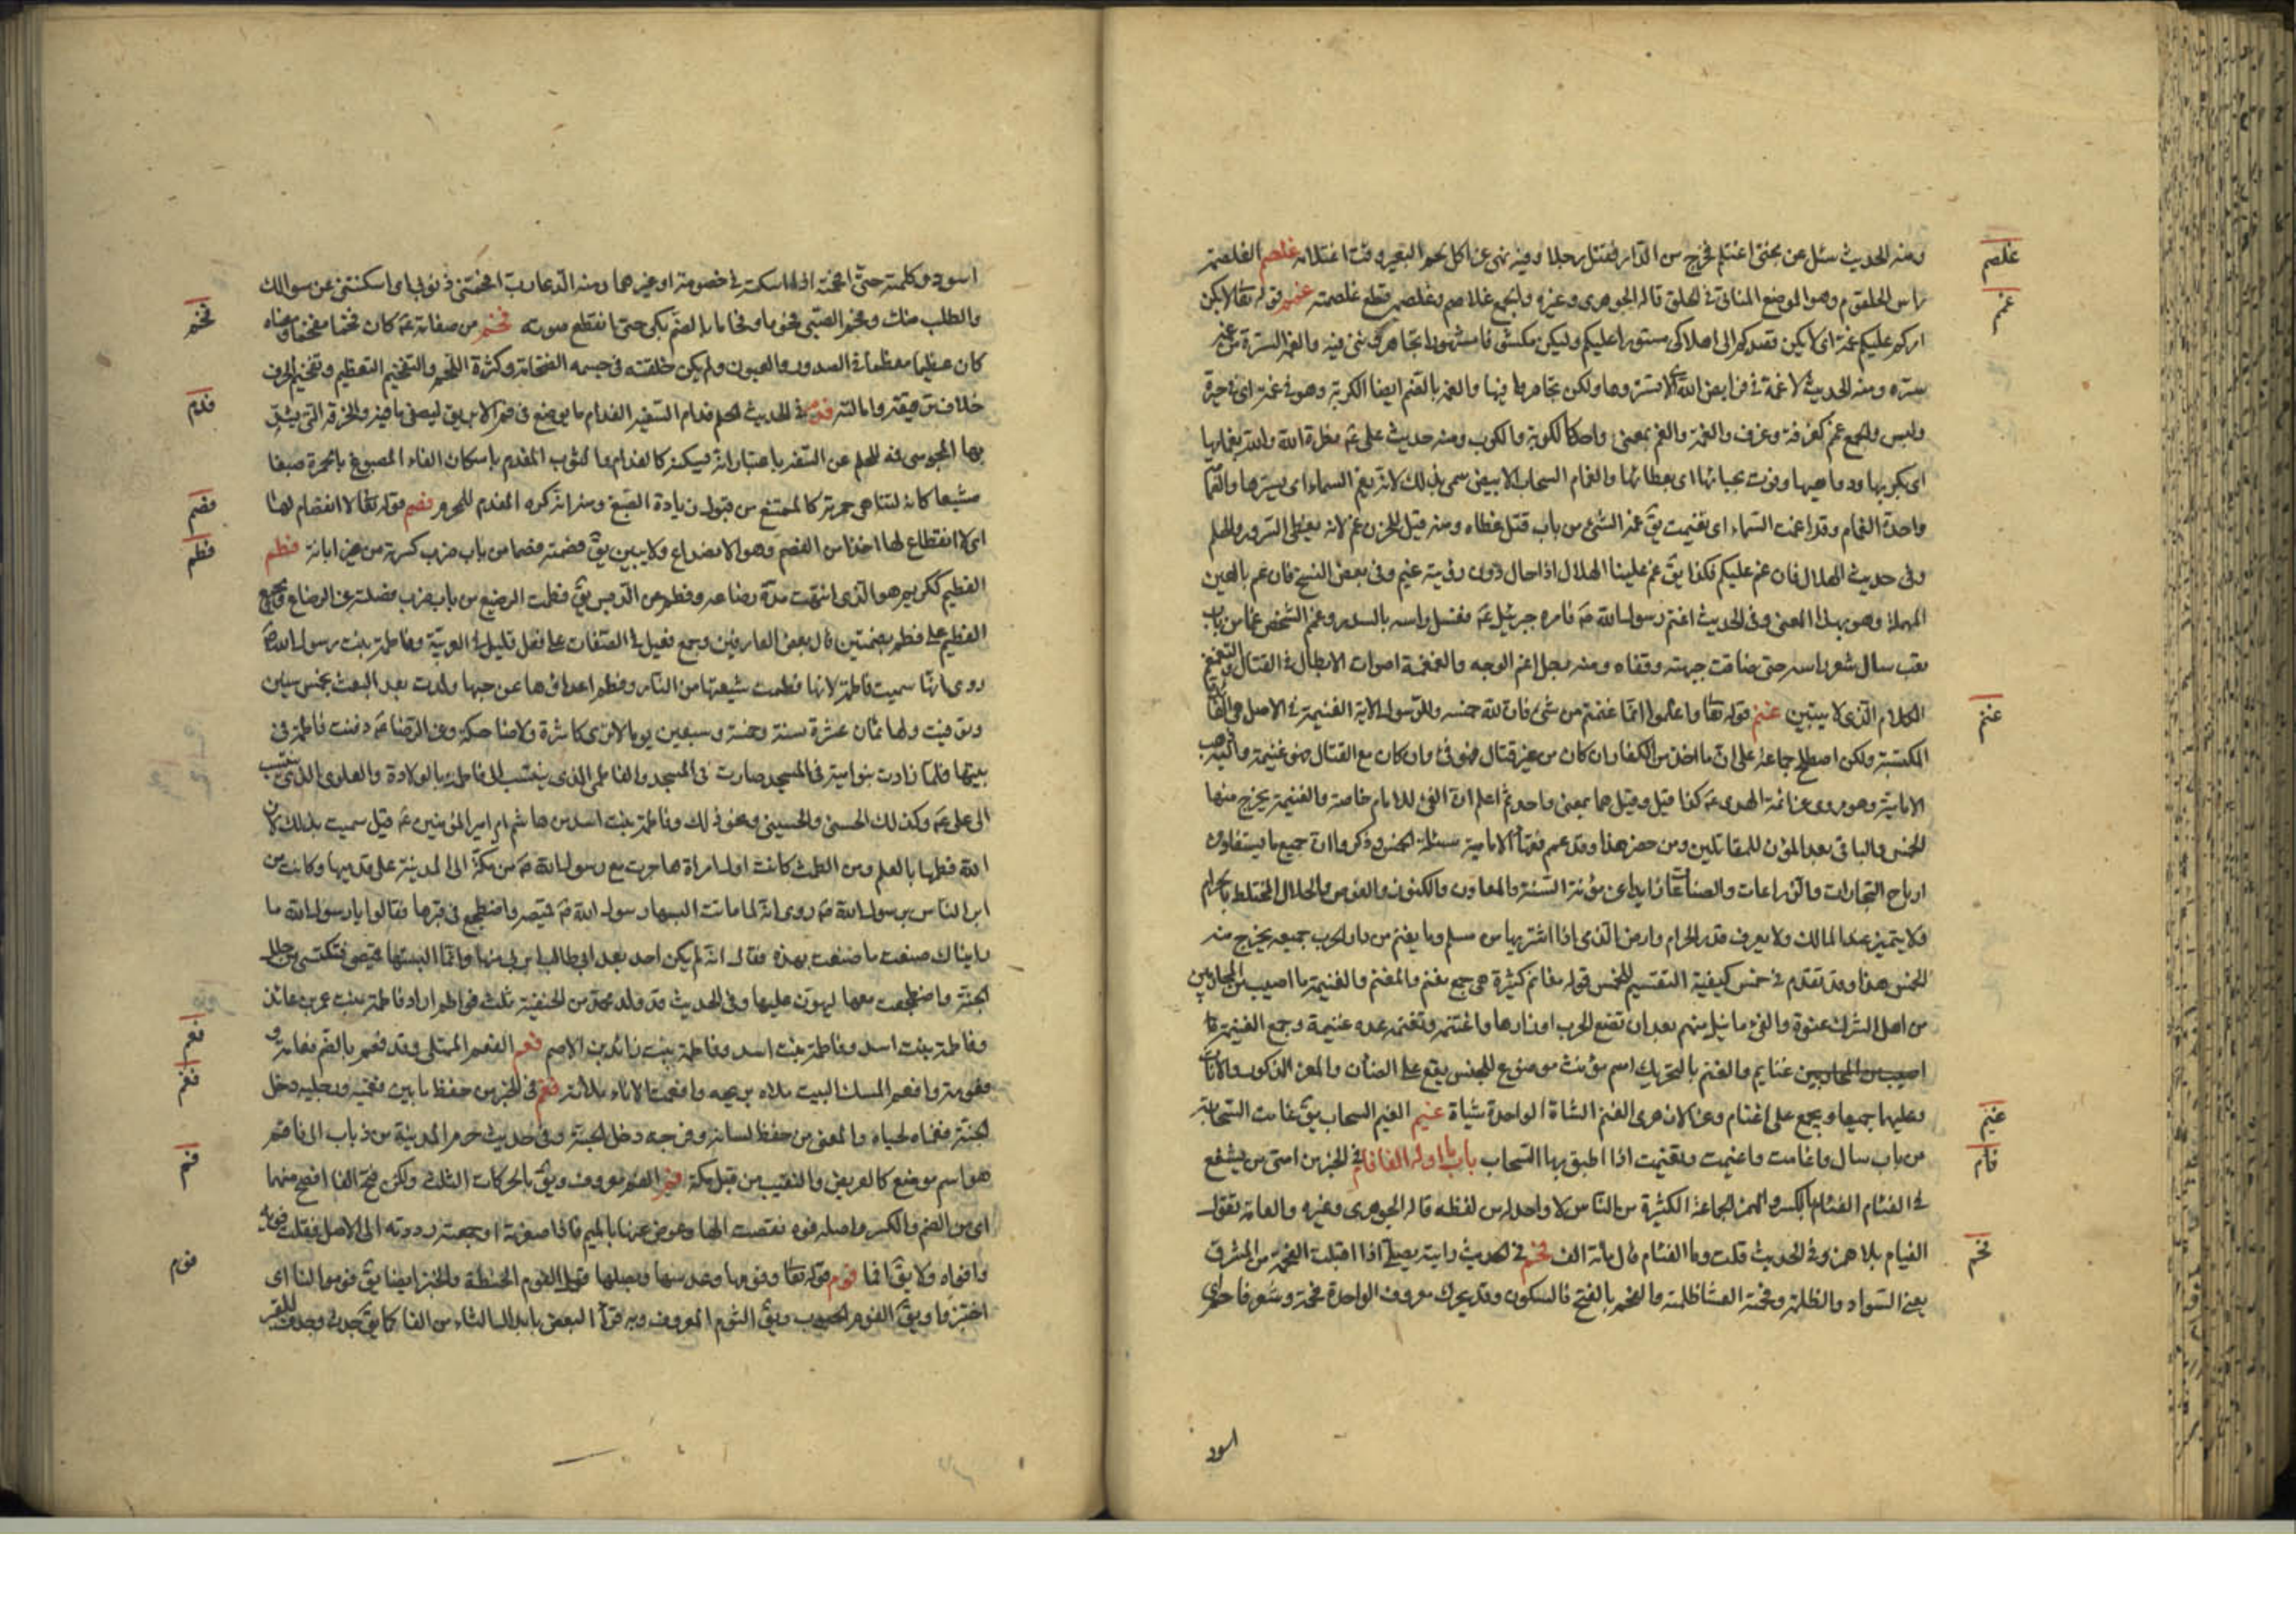 ومنه الحديث سئل عن بختى اغتلم فخرج من الدار فقتل رجلا وفيه نهى عن اكل لحم البعير وقت اغتلامه غلصم الغلصمة
راس الحلقوم وهو الموضع الناتى فى الحلق قاله الجوهرى وغيره والجمع غلاصم وغلصمه قطع غلصمته غمم قوله تعا لا يكن
امركم عليكم غمة اى لا يكن قصدكم الى اهلاكى مستورا عليكم وليكن مكشوفا مشهورا تجاهروننى فيه والغمة السترة من غمه
ستره ومنه الحديث لا غمة فى فرايض الله اى لا تستر وها ولكن تجاهر بها فيها والغمة بالضم ايضا الكربة وهو فى غمة اى فى حيرة
ولبس والجمع غمم كغرفة وغرف والغمة والغم بمعنى واحد كالكربة والكرب ومنه حديث على عم
واحدة الغمام وقد اغمت السماء اى تغيمت يق غمه الشئ من باب قتل غطاه ومنه قيل للحزن غم لانه يغطى السرور والحلم
وفى حديث الهلال فان غم عليكم فكذا يق غم علينا الهلال اذا حال دون رؤيته غيم وفى بعض النسخ فان عم بالعين
المهملة وهو بهذا المعنى وفى الحديث اغتم رسول الله ص فامره جبرئيل عم فغسل راسه بالسدر وغم الشخص غما من باب
تعب سال شعر راسه حتى ضاقت جبهته وقفاه ومنه رجل اغم الوجه والغمغمة اصوات الابطال فى القتال والتغمغم
الكلام الذى لا يبين غنم قوله تعا واعلموا انما غنمتم من شئ فان لله خمسه وللرسول الاية الغنيمة فى الاصل هى الفائدة
المكتسبة ولكن اصطلح جماعة على ان ما اخذ من الكفار ان كان من غير قتال فهو فئ وان كان مع القتال فهو غنيمة واليه ذهب
الامامية وهو مروى عن ائمة الهدى عم كذا قيل وقيل هما بمعنى واحد ثم اعلم ان الفئ للامام خاصة والغنيمة يخرج منها
الخمس والباقى بعد المؤن للمقاتلين ومن حضر هذا وقد عمم فقهاء الامامية مسئلة الخمس وذكروا ان جميع ما يستفاد من
ارباح التجارات والزراعات والصناعات زايدا عن مؤنة السنة والمعادن والكنوز والغوص والحلال المختلط بالحرام
فلا يتميز عند المالك ولا يعرف قدر الحرام وارض الذمى اذا اشتريها من مسلم وما يغنم من دار الحرب جميعه يخرج منه
الخمس هذا وقد تقدم فى خمس كيفية التقسيم للخمس قوله مغانم كثيرة هى جمع مغنم والمغنم والغنيمة ما اصيب من المحاربين
من اهل الشرك عنوة والفئ ما نيل منهم بعد ان تضع الحرب اوزارها واغتنمه وتغنمه عده غنيمة وجمع الغنيمة
اصيب من المحاربين غنايم والغنم بالتحريك اسم مؤنث موضوع للجنس يقع على الضان والمعز الذكور والاناث
وعليها جميعا ويجمع على اغنام وعن الازهرى الغنم الشاة الواحدة شياة غيم الغيم السحاب يق غامت السحابة
من باب سال واغامت واغيمت وتغيمت اذا اطبق بها السحاب باب ما اوله الفا فام فى الخبر من امتى من يشفع
فى الفئام الفئام بالكسر والهمز الجماعة الكثيرة من الناس لا واحد له من لفظه قاله الجوهرى وغيره والعامة تقول
الفيام بلا همز وفى الحديث قلت وما الفئام قال مائة الف فحم فى الحديث رايته يصلى اذا اقبلت الفحمة من المشرق
يعنى السواد والظلمة وفحمة العشا ظلمته والفحم بالفتح فالسكون وقد يحرك معروف الواحدة فحمة وشعر فاحم اى
اسود
غلصم
غمم
غنم
غيم
فام
فحم
اسود وكلمته حتى افحمته اذا اسكته فى خصومة او غيرها ومنه الدعا رب افحمتنى ذنوبى اى اسكتتنى عن سوالك
والطلب منك وفحم الصبى فحوما وفحاما بالضم بكى حتى انقطع صوته فخم من صفاته عم كان فخما مفخما ومعناه
كان عظيما معظما فى الصدور والعيون ولم يكن خلقته فى جسمه الفخامة وكثرة اللحم والتفخيم التعظيم وتفخيم الحرف
خلاف ترقيقه وامالته فدم فى الحديث الحلم فدام السفيه الفدام ما يوضع فى فم الابريق ليصفى ما فيه والخرقة التى يشد
بها المجوسى فمه للحلم عن السفه باعتبار انه يسكته كالفدام والثوب المفدم باسكان الفاء المصبوغ بالحمرة صبغا
مشبعا كانه لتناهى حمرته كالممتنع من قبول زيادة الصبغ ومنه انه كره المفدم للمحرم فصم قوله تعا لا انفصام لها
اى لا انقطاع لها اخذا من الفصم وهو الانصداع ولا يبين يق فصمته فصما من باب ضرب كسرته من غير ابانة فطم
الفطيم ككريم هو الذى انتهت مدة رضاعه وفطم عن الثدى يق فطمت الرضيع من باب ضرب فصلته عن الرضاع وجمع
الفطيم على فطم بضمتين قال بعض العارفين وجمع فعيل فى الصفات على فعل قليل فى العربية وفاطمة بنت رسول الله ص
روى انها سميت فاطمة لانها فطمت شيعتها من النار وفطم اعداؤها عن حبها ولدت بعد البعث بخمس سنين
وتوفيت ولها ثمان عشرة سنة وخمسة وسبعين يوما لا ترى كاشرة ولا ضاحكة وعن الرضا عم دفنت فاطمة فى
بيتها فلما زادت بنو امية فى المسجد صارت فى المسجد والفاطمى الذى ينتسب الى فاطمة بالولادة والعلوى الذى ينتسب
الى على عم وكذلك الحسنى والحسينى ونحو ذلك وفاطمة بنت اسد بن هاشم ام امير المؤمنين عم قيل سميت بذلك لان
الله فطمها بالعلم ومن الطمث كانت اول امراة هاجرت مع رسول الله ص من مكة الى المدينة على قدميها وكانت من
ابر الناس برسول الله ص روى انه لما ماتت البسها رسول الله ص قميصه واضطجع فى قبرها فقالوا يا رسول الله ما
رايناك صنعت ما صنعت بهذه فقال انه لم يكن احد بعد ابى طالب ابر بى منها وانما البستها قميصى لتكتسى من حلل
الجنة واضطجعت معها ليهون عليها وفى الحديث قد ولد محمد بن الحنفية ثلث فواطم اراد فاطمة بنت عمر بن عائذ
وفاطمة بنت اسد وفاطمة بنت اسد وفاطمة بنت زائد بن الاصم فعم الفعم الممتلى وقد فعم بالضم فعامة و
فعومة وافعم المسك البيت ملاه بريحه وافعمت الاناء ملاته فغم فى الخبر من حفظ ما بين فغميه ورجليه دخل
الجنة فغماه لحياه والمعنى من حفظ لسانه وفرجه دخل الجنة وفى حديث حرم المدينة من ذباب الى فاغم
هو اسم موضع كالعريض والنقيب من قبل مكة فم الفم معروف ويق بالحركات الثلث ولكن فتح الفا افصح منها
اى من الضم والكسر واصله فوه نقصت الها وعوض عنها بالميم فاذا صغرته او جمعته رددته الى الاصل فقلت فويه
وافواه ولا يق افما فوم قوله تعا وفومها وعدسها وبصلها قيل الفوم الحنطة والخبز ايضا يق فوموا لنا اى
اختبزوا ويق الفوم الحبوب ويق الثوم المعروف وبه قرا البعض بابدال الثاء من الفا كما يق جدث وجدف للقبر
فخم
فدم
فصم
فطم
فعم
فغم
فمم
فوم